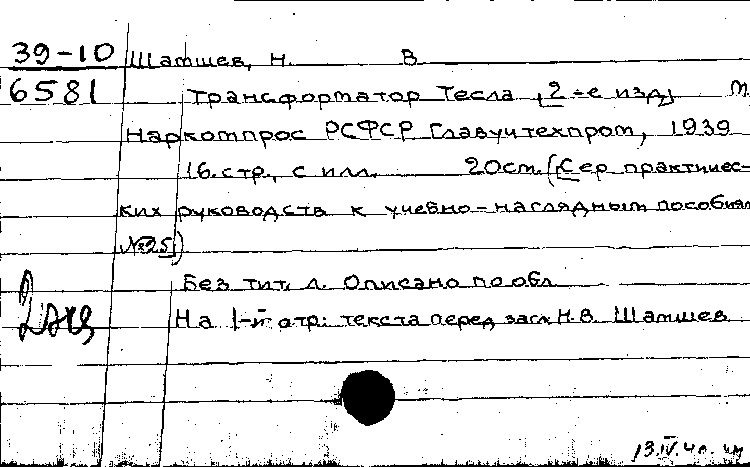 39-10
6581
Шамшев, Н. В
Трансформатор Тесла, 2-е изд, М.
Наркомпрос РСФСР Главучтехпром, 1939
16. стр., с илл. 20 см. (Сер. практичес-
ких руководств к учебно-наглядным пособиям
№25)
Без тит. л. Описано по обл
2 экз
На 1-й стр: текста перед загл. Н. В. Шамшев